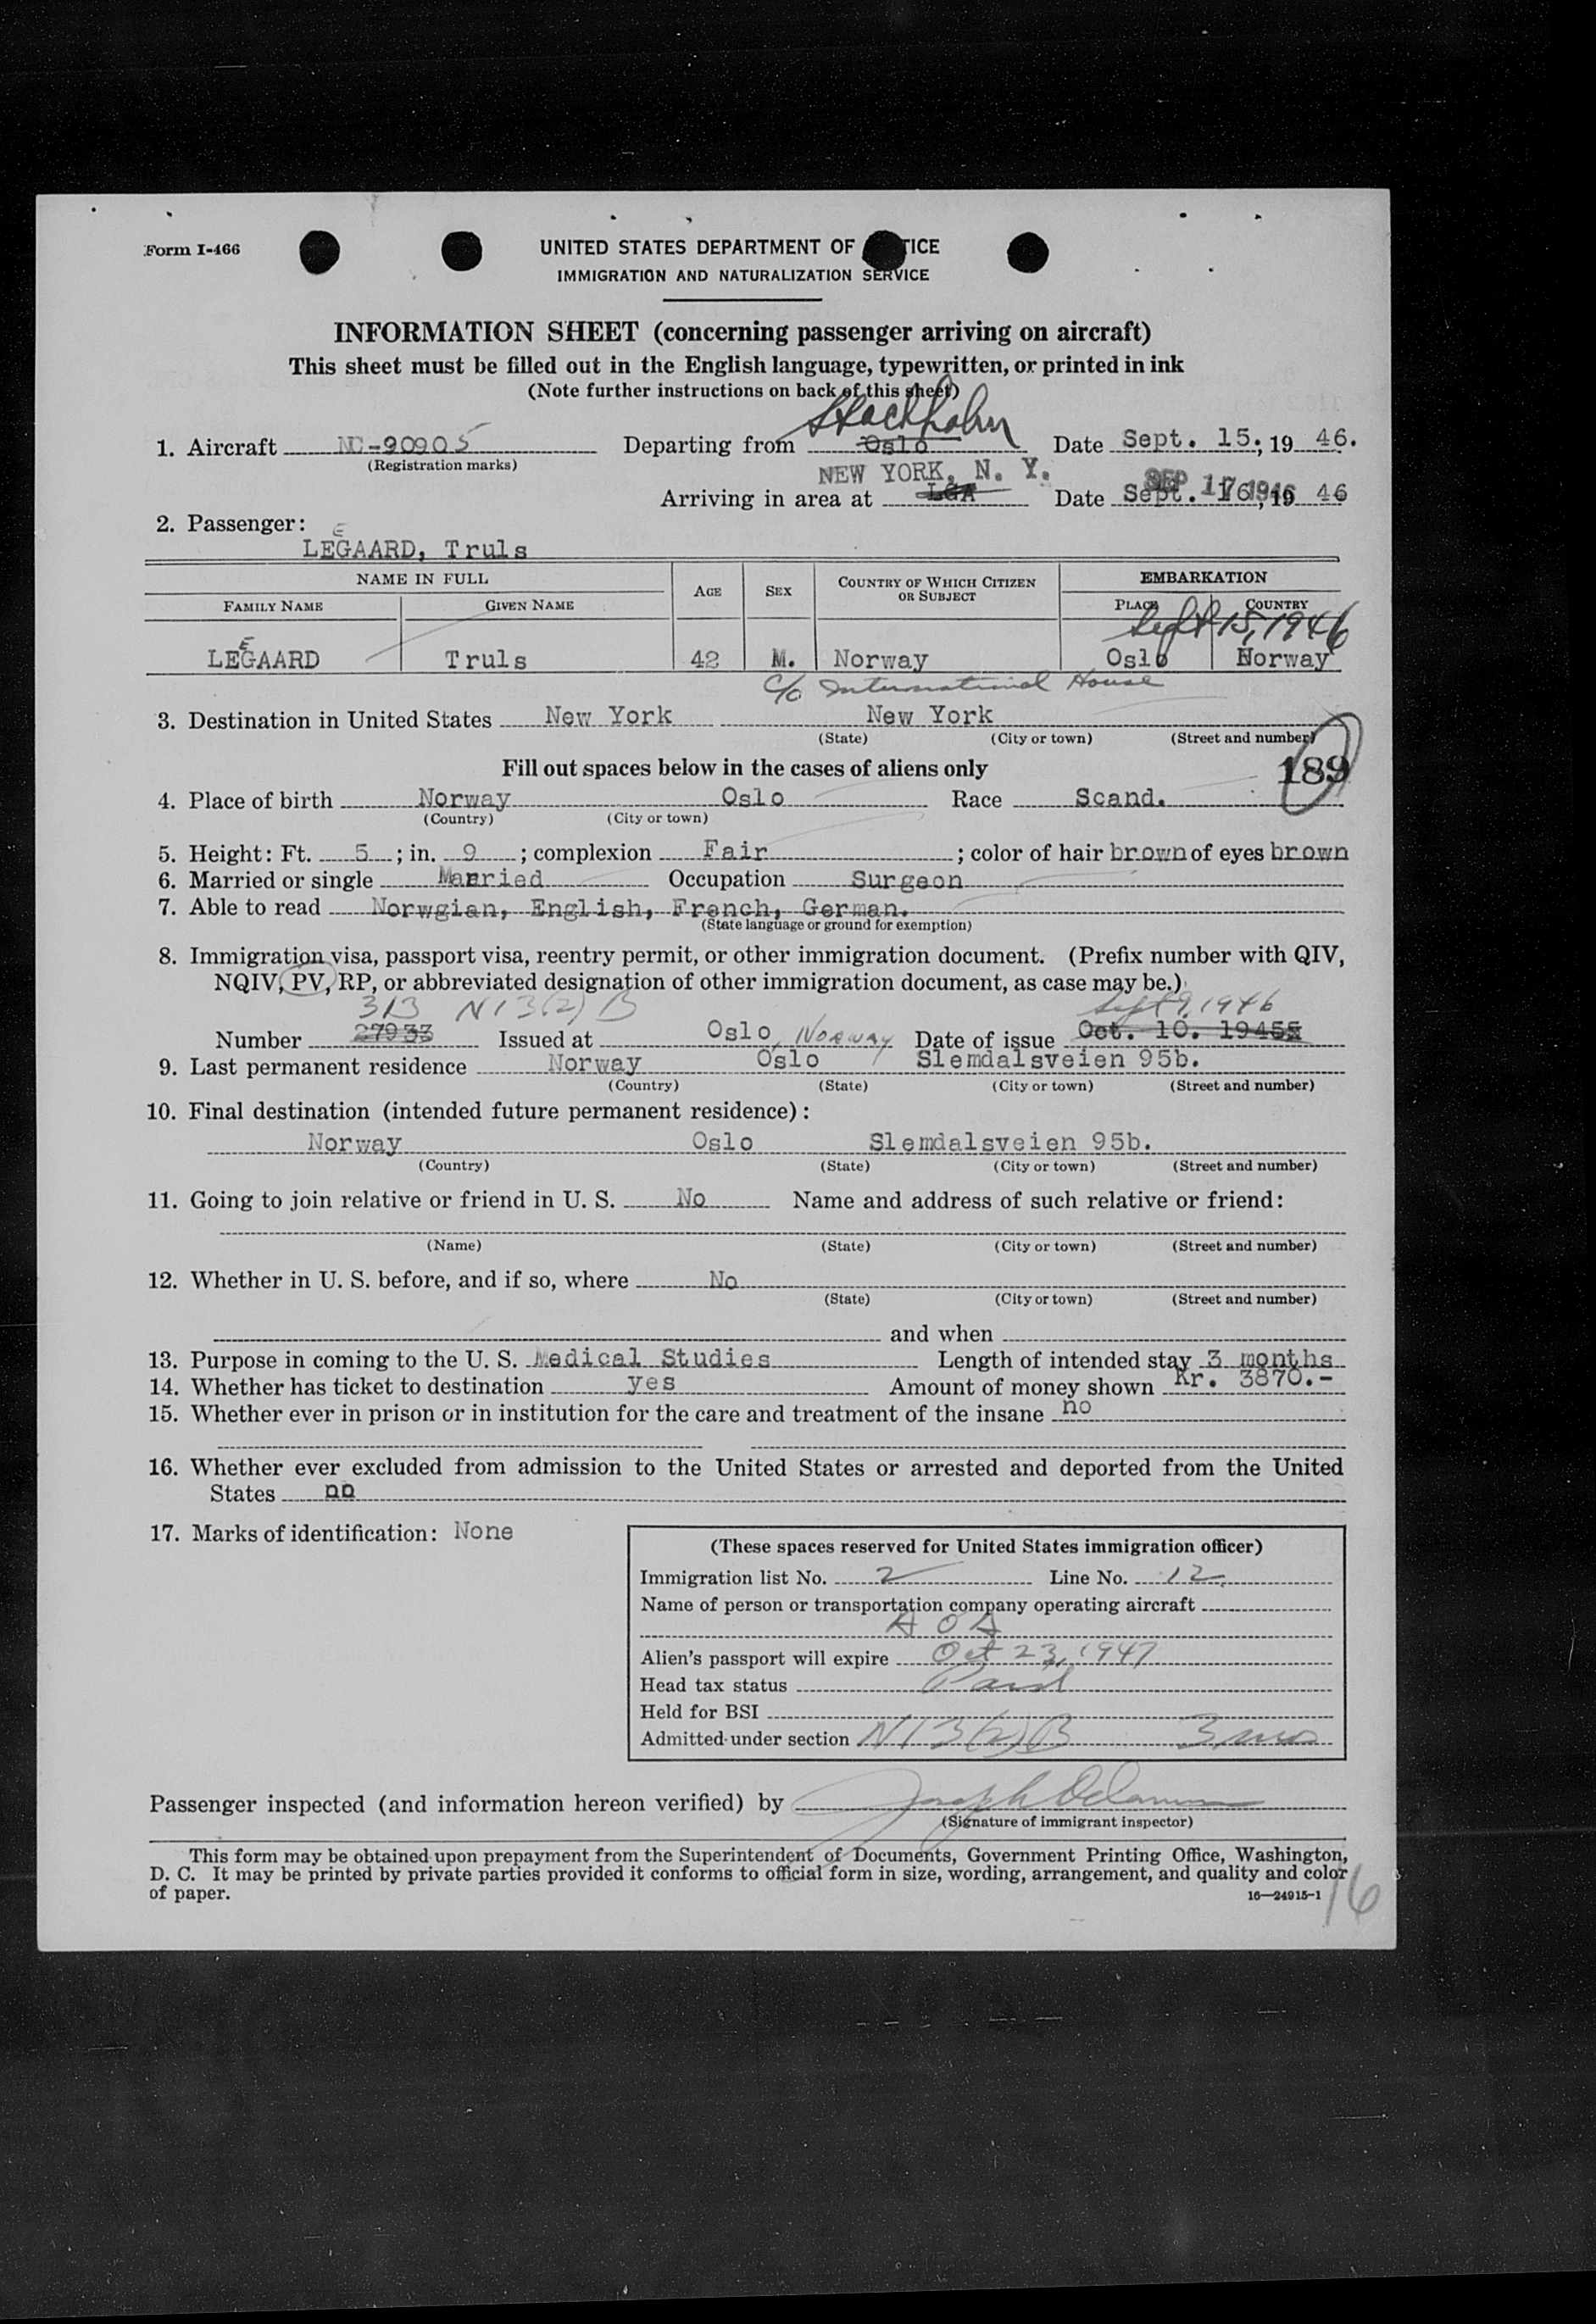 Form I-466
UNITED STATES DEPARTMENT OF TICE
IMMIGRATION AND NATURALIZATION SERVICE
INFORMATION SHEET (concerning passenger arriving on aircraft)
This sheet must be filled out in the English language, typewritten, or printed in ink
(Note further instructions on back of this sheet)
Stockholm
1. Aircraft NC-90905 Departing from Oslo Date Sept. 15, 19 46.
(Registration marks)
NEW YORK, N. Y. SEP 17 1946
Arriving in area at LGA Date Sept. 16, 19 46
2. Passenger:
E
LEGAARD, Truls
NAME IN FULL AGE SEX COUNTRY OF WHICH CITIZEN OR SUBJECT EMBARKATION
FAMILY NAME GIVEN NAME PLACE COUNTRY
Sept 15, 1946
E
LEGAARD Truls 42 M. Norway Oslo Norway
c/o International House
3. Destination in United States New York New York
(State) (City or town) (Street and number)
Fill out spaces below in the cases of aliens only
189
4. Place of birth Norway Oslo Race Scand.
(Country) (City or town)
5. Height: Ft. 5; in. 9; complexion Fair; color of hair brown of eyes brown
6. Married or single Married Occupation Surgeon
7. Able to read Norwgian, English, French, German.
(State language or ground for exemption)
8. Immigration visa, passport visa, reentry permit, or other immigration document. (Prefix number with QIV,
NQIV, PV, RP, or abbreviated designation of other immigration document, as case may be.)
313 N13(2)B Sept 9, 1946
Number 27933 Issued at Oslo, NORWAY Date of issue Oct. 10. 1945
9. Last permanent residence Norway Oslo Slemdalsveien 95b.
(Country) (State) (City or town) (Street and number)
10. Final destination (intended future permanent residence):
Norway Oslo Slemdalsveien 95b.
(Country) (State) (City or town) (Street and number)
11. Going to join relative or friend in U. S. No Name and address of such relative or friend:
(Name) (State) (City or town) (Street and number)
12. Whether in U. S. before, and if so, where No
(State) (City or town) (Street and number)
and when
13. Purpose in coming to the U. S. Medical Studies Length of intended stay 3 months
14. Whether has ticket to destination yes Amount of money shown Kr. 3870.-
15. Whether ever in prison or in institution for the care and treatment of the insane no
16. Whether ever excluded from admission to the United States or arrested and deported from the United
States no
17. Marks of identification: None
(These spaces reserved for United States immigration officer)
Immigration list No. 2 Line No. 12
Name of person or transportation company operating aircraft
A O A
Alien's passport will expire Oct 23, 1947
Head tax status Paid
Held for BSI
Admitted under section N13(2)B 3 mos
Passenger inspected (and information hereon verified) by Joseph
(Signature of immigrant inspector)
This form may be obtained upon prepayment from the Superintendent of Documents, Government Printing Office, Washington,
D. C. It may be printed by private parties provided it conforms to official form in size, wording, arrangement, and quality and color
of paper.
16—24915-1
16